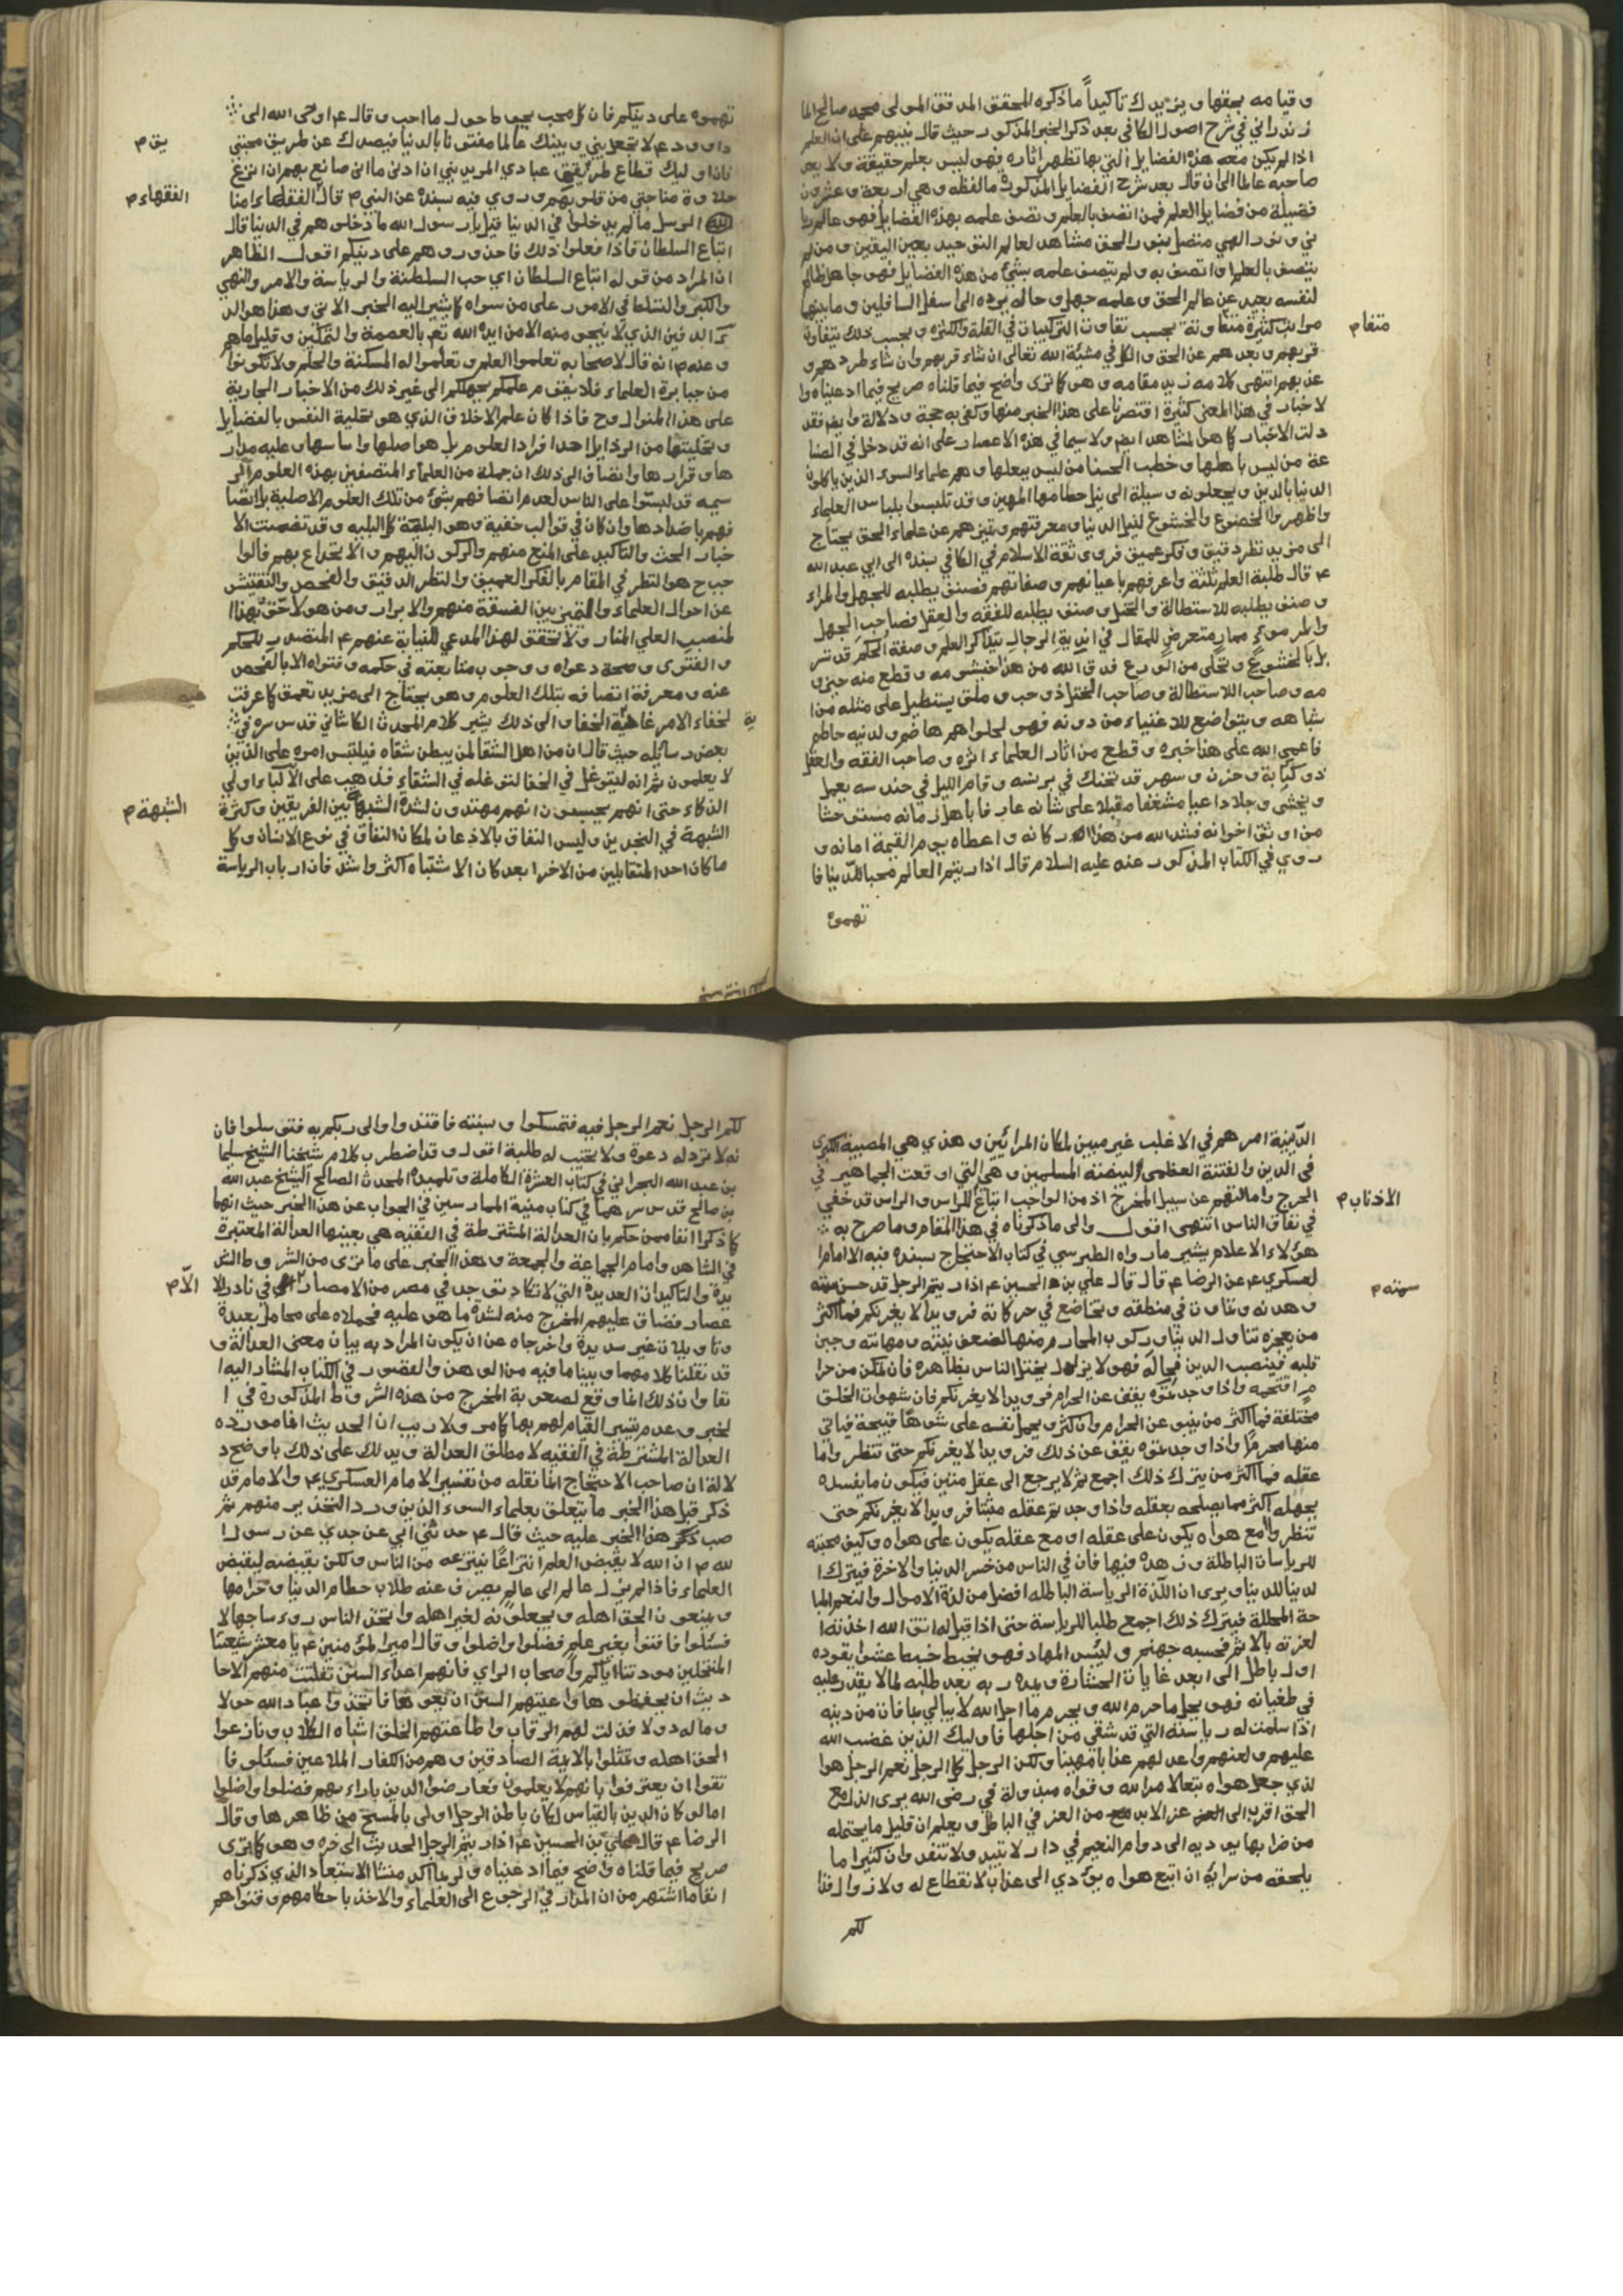 و قيامه بحقها و يزيدك تاكيداً ما ذكره المحقق المدقق المولى محمد صالح الما
زندراني في شرح اصول الكافي بعد ذكر الخبر المذكور حيث قال نبيهم على ان العلم
اذا لم يكن معه هذه الفضايل التي بها تظهر اثاره فهو ليس بعلم حقيقة ولا يعد
صاحبه عالما الى ان قال بعد شرح الفضايل المذكورة ما لفظه و هي اربعة و عشرون
فضيلة من فضايل العلم فمن اتصف بالعلم و تصف علمه بهذه الفضايل فهو عالم ربا
ني و نور الهي متصل بنور الحق مشاهد لعالم التوحيد بعين اليقين و من لم
يتصف بالعلم او اتصف به و لم يتصف علمه بشئ من هذه الفضايل فهو جاهل ظالم
لنفسه بعيد عن عالم الحق و علمه جهل و حاله يرده الى اسفل السافلين و ما بينها
مراتب كثيرة متفاوتة بحسب تفاوت التركيبات في القلة والكثرة و بحسب ذلك يتفاوت
متفا م
قربهم و بعدهم عن الحق و الكل في مشية الله تعالى ان شاء قربهم و ان شاء طردهم و
عذبهم انتهى كلامه زيد مقامه و هو كما ترى واضح فيما قلناه صريح فيما ادعيناه وا
لاخبار في هذا المعنى كثيرة اقتصرنا على هذا الخبر منها و كفى به حجة و دلالة و ايض فقد
دلت الاخبار كما هو المشاهد ايض ولا سيما في هذه الاعصار على انه قد دخل في الصنا
عة من ليس باهلها و خطب الحسنا من ليس ببعلها و هم علماء السوء الذين ياكلون
الدنيا بالدين و يجعلونه وسيلة الى نيل حطامها المهين و قد تلبسوا بلباس العلماء
واظهروا الخضوع والخشوع لنيل الدنيا و معرفتهم و تميزهم عن علماء الحق يحتاج
الى مزيد نظر دقيق و فكر عميق فروى ثقة الاسلام في الكافي بسنده الى ابي عبد الله
ع قال طلبة العلم ثلثة واعرفهم باعيانهم و صفاتهم فصنف يطلبه للجهل والمراء
و صنف يطلبه للاستطالة والختل و صنف يطلبه للفقه والعقل فصاحب الجهل
والمراء موءذٍ ممارٍ متعرض للمقال في اندية الرجال بتذاكر العلم و صفة الحلم قد تسر
بل بالخشوع و تخلى من الورع فدق الله من هذا خيشومه و قطع منه حيزو
مه و صاحب الاستطالة و صاحب الختل ذو خب و ملق يستطيل على مثله من ا
شباهه و يتواضع للاغنياء من دونه فهو لحلواهم هاضم و لدينه حاطم
فاعمى الله على هذا خبره و قطع من اثار العلماء اثره و صاحب الفقه والعقل
ذو كئابة و حزن و سهر قد تحنك في برنسه و قام الليل في حندسه يعمل
و يخشى وجلا داعيا مشفقا مقبلا على شانه عارفا باهل زمانه مستوحشا
من اوثق اخوانه فشد الله من هذا اركانه و اعطاه يوم القيمة امانه و
روي في الكتاب المذكور عنه عليه السلام قال اذا رايتم العالم محبا للدنيا فا
تهموه
تهموه على دينكم فان كل محب يحوط ما حول ما احب و قال ع اوحى الله الى
داوود ع لا تجعل بيني و بينك عالما مفتونا بالدنيا فيصدك عن طريق محبتي
يق م
فان اوليك قطاع طريقي عبادي المريدين ان ادنى ما انا صانع بهم ان انزع
حلاوة مناجاتي من قلوبهم و روي فيه بسنده عن النبي ص قال الفقهاء امنا
الفقهاء م
الرسل ما لم يدخلوا في الدنيا قيل يا رسول الله ما دخلوهم في الدنيا قال
اتباع السلطان فاذا فعلوا ذلك فاحذروهم على دينكم اقول الظاهر
ان المراد من قوله اتباع السلطان اي حب السلطنة والرياسة والامر والنهي
والكبر والتسلط في الامور على من سواه كما يشير اليه الخبر الاتي و هذا هو الد
اء الدفين الذي لا ينجو منه الا من ايده الله تع بالعصمة والتمكين و قليل ما هم
و عنه ص انه قال لاصحابه تعلموا العلم و تعلموا له المسكنة والحلم ولا تكونوا
من جبابرة العلماء فلا يقوم علمكم بجهلكم الى غير ذلك من الاخبار الجارية
على هذا المنوال وح فاذا كان علم الاخلاق الذي هو تحلية النفس بالفضايل
و تخليتها من الرذايل احد افراد العلوم بل هو اصلها واساسها و عليه مدار
ها و قرارها وانضاف الى ذلك ان جملة من العلماء المتصفين بهذه العلوم الر
سمية قد لبسوا على الناس لعدم اتصافهم بشئ من تلك العلوم الاصلية بل اتصا
فهم باضدادها وان كان في قوالب خفية و هو البلية كل البليه و قد تضمنت الا
خبار الحث والتاكيد على المنع منهم والركون اليهم و الانخداع بهم فالوا
جب ح هو النظر في المقام بالفكر العميق والنظر الدقيق والفحص والتفتيش
عن احوال العلماء والتميز بين الفسقة منهم والابرار و من هو لاحق بهذا ا
لمنصب العلي المنار ولا تحقق لهذا المدعي للنيابة عنهم ع المتصدر للحكم
والفتوى و صحة دعواه و وجوب متابعته في حكمه و فتواه الا بالفحص
عنه و معرفة اتصافه بتلك العلوم و هو يحتاج الى مزيد تعمق كما عرفت
لخفاء الامر غاية الخفاء والى ذلك يشير كلام المحدث الكاشاني قدس سره في
ية
بعض رسائله حيث قال ان من اهل الشقا لمن يبطن شقاه فيلتبس امره على الذين
لا يعلمون ثم انه ليتوغل في الخفا لتوغله في الشقاء فيذهب على الالباء اولي
الذكاء حتى انهم يحسبون انهم مهتدون لشدة الشبه بين الفريقين و كثرة
الشبهة م
الشبهة في النجدين وليس النفاق بالاذعان لمكان النفاق في نوع الانسان وكل
ما كان احد المتقابلين من الاخر ابعد كان الاشتباه اكثر واشد فان ارباب الرياسة
الدينية امرهم في الاغلب غير مبين لمكان المرائين و هذي هي المصيبة الكبرى
في الدين والفتنة العظمى لبيضة المسلمين و هي التي اوقعت الجماهير في
الحرج وامالتهم عن سبيل المخرج اذ من الواجب اتباع للراس والراس قد خفي
الاذناب م
في نفاق الناس انتهى اقول والى ما ذكرناه في هذا المقام و ما صرح به
هؤلاء الاعلام يشير ما رواه الطبرسي في كتاب الاحتجاج بسنده فيه الامام ا
لعسكري ع عن الرضا ع قال قال علي بن الحسين ع اذا رايتم الرجل قد حسن
سمته م
و هديه و تماوت في منطقه و تخاضع في حركاته فرويدا لا يغرنكم فما اكثر
من يعجزه تناول الدنيا و ركوب المحارم منها لضعف نيته و مهانته و جبن
قلبه فينصب الدين فخاله فهو لا يزال يختل الناس بظاهره فان تمكن من حرا
مٍ اقتحمه واذا وجدتموه يعف عن الحرام فرويدا لا يغرنكم فان شهوات الخلق
مختلفة فما اكثر من ينبو عن الحرام وان كثر و يحمل نفسه على شوهاء قبيحة فياتي
منها محرما واذا وجدتموه يعف عن ذلك فرويدا لا يغرنكم حتى تنظروا ما
عقله فما اكثر من يترك ذلك اجمع ثم لا يرجع الى عقل متين فيكون ما يفسده
بجهله اكثر مما يصلحه بعقله واذا وجدتم عقله متينا فرويدا لا يغرنكم حتى
تنظروا مع هواه يكون على عقله او مع عقله يكون على هواه و كيف محبته
للرياسات الباطلة و زهده فيها فان في الناس من خسر الدنيا والاخرة فيترك ا
لدنيا للدنيا و يرى ان اللذة الرياسة الباطلة افضل من لذة الاموال والنعم المبا
حة المحللة فيترك ذلك اجمع طلبا للرياسة حتى اذا قيل له اتق الله اخذته ا
لعزة بالاثم فحسبه جهنم و لبئس المهاد فهو يخبط خبط عشوا يقوده
اول باطل الى ابعد غايات الخسارة و يمده ربه بعد طلبه لما لا يقدر عليه
في طغيانه فهو يحل ما حرم الله و يحرم ما احل الله لا يبالي بما فات من دينه
اذا سلمت له رياسته التي قد شقي من اجلها فاوليك الذين غضب الله
عليهم و لعنهم واعد لهم عذابا مهينا و لكن الرجل كل الرجل نعم الرجل هو ا
لذي جعل هواه تبعا لامر الله و قواه مبذولة في رضى الله يرى الذل مع
الحق اقرب الى عز الابد من العز في الباطل و يعلم ان قليل ما يحتمله
من ضرايها يوديه الى دوام النعيم في دار لا تبيد ولا تنفد وان كثير ما
يلحقه من سرايها ان اتبع هواه يؤدي الى عذاب لا انقطاع له ولا زوال فذا
لكم
لكم الرجل نعم الرجل فيه فتمسكوا و بسنته فاقتدوا والى ربكم به فتوسلوا فان
نه لا ترد له دعوة ولا تخيب له طلبة اقول و قد اضطرب كلام شيخنا الشيخ سليما
بن عبد الله البحراني في كتاب العشرة الكاملة و تلميذه المحدث الصالح الشيخ عبد الله
بن صالح قدس سرهما في كتاب منية الممارسين في الجواب عن هذا الخبر حيث انهما
كما ذكرا انفا ممن حكم بان العدالة المشترطة في الفقيه هي بعينها العدالة المعتبرة
في الشاهد وامام الجماعة والجمعة و هذا الخبر على ما ترى من الشروط الش
ديدة والتاكيدات العديدة التي لا تكاد توجد في مصر من الامصار في نادر الا
الّا م
عصار فضاق عليهم المخرج منه لشدة ما هو عليه فحملاه على محامل بعيدة
و تاويلات غير سديدة واخرجاه عن ان يكون المراد به بيان معنى العدالة و
قد نقلنا كلامهما و بينا ما فيه من الوهن والقصور في الكتاب المشار اليه ا
نفا وان ذلك انما وقع لصعوبة المخرج من هذه الشروط المذكورة في ا
لخبر و عدم تيسر القيام لهم بها كما مر ولا ريب ان الحديث انما مورده
العدالة المشترطة في الفقيه لا مطلق العدالة و يدلك على ذلك باوضح د
لالة ان صاحب الاحتجاج انما نقله من تفسير الامام العسكري ع والامام قد
ذكر قبل هذا الخبر ما يتعلق بعلماء السوء الذين ورد التحذير منهم ثم
صب ذكر هذا الخبر عليه حيث قال ع حدثني ابي عن جدي عن رسول ا
لله ص ان الله لا يقبض العلم انتزاعًا ينتزعه من الناس و لكن يقبضه بقبض
العلماء فاذا لم ينزل عالم الى عالم يصرف عنه طلاب حطام الدنيا و حرامها
و يمنعون الحق اهله و يجعلونه لغير اهله واتخذ الناس روءسا جهالا
فسئلوا فافتوا بغير علم فضلوا واضلوا و قال امير المؤمنين ع يا معشر شيعتنا
المنتحلين مودتنا اياكم واصحاب الراي فانهم اعداء السنن تفلتت منهم الاحا
ديث ان يحفظوها واعيتهم السنن ان يعوها فاتخذوا عباد الله خولا
و ماله دولا فذلت لهم الرقاب واطاعتهم الخلق اشباه الكلاب و نازعوا
الحق اهله و تمثلوا بالايمة الصادقين و هم من الكفار الملاعين فسئلوا فا
نفوا ان يعترفوا بانهم لا يعلمون فعارضوا الدين باراءهم فضلوا واضلوا
اما لو كان الدين بالقياس لكان باطن الرجل اولى بالمسح من ظاهرها و قال
الرضا ع قال علي بن الحسين ع اذا رايتم الرجل الحديث الى اخره و هو كما ترى
صريح فيما قلناه واضح فيما ادعيناه و لربما اكد منشا الاستبعاد الذي ذكرناه
انفا ما اشتهر من ان المدار في الرجوع الى العلماء والاخذ باحكامهم و فتواهم